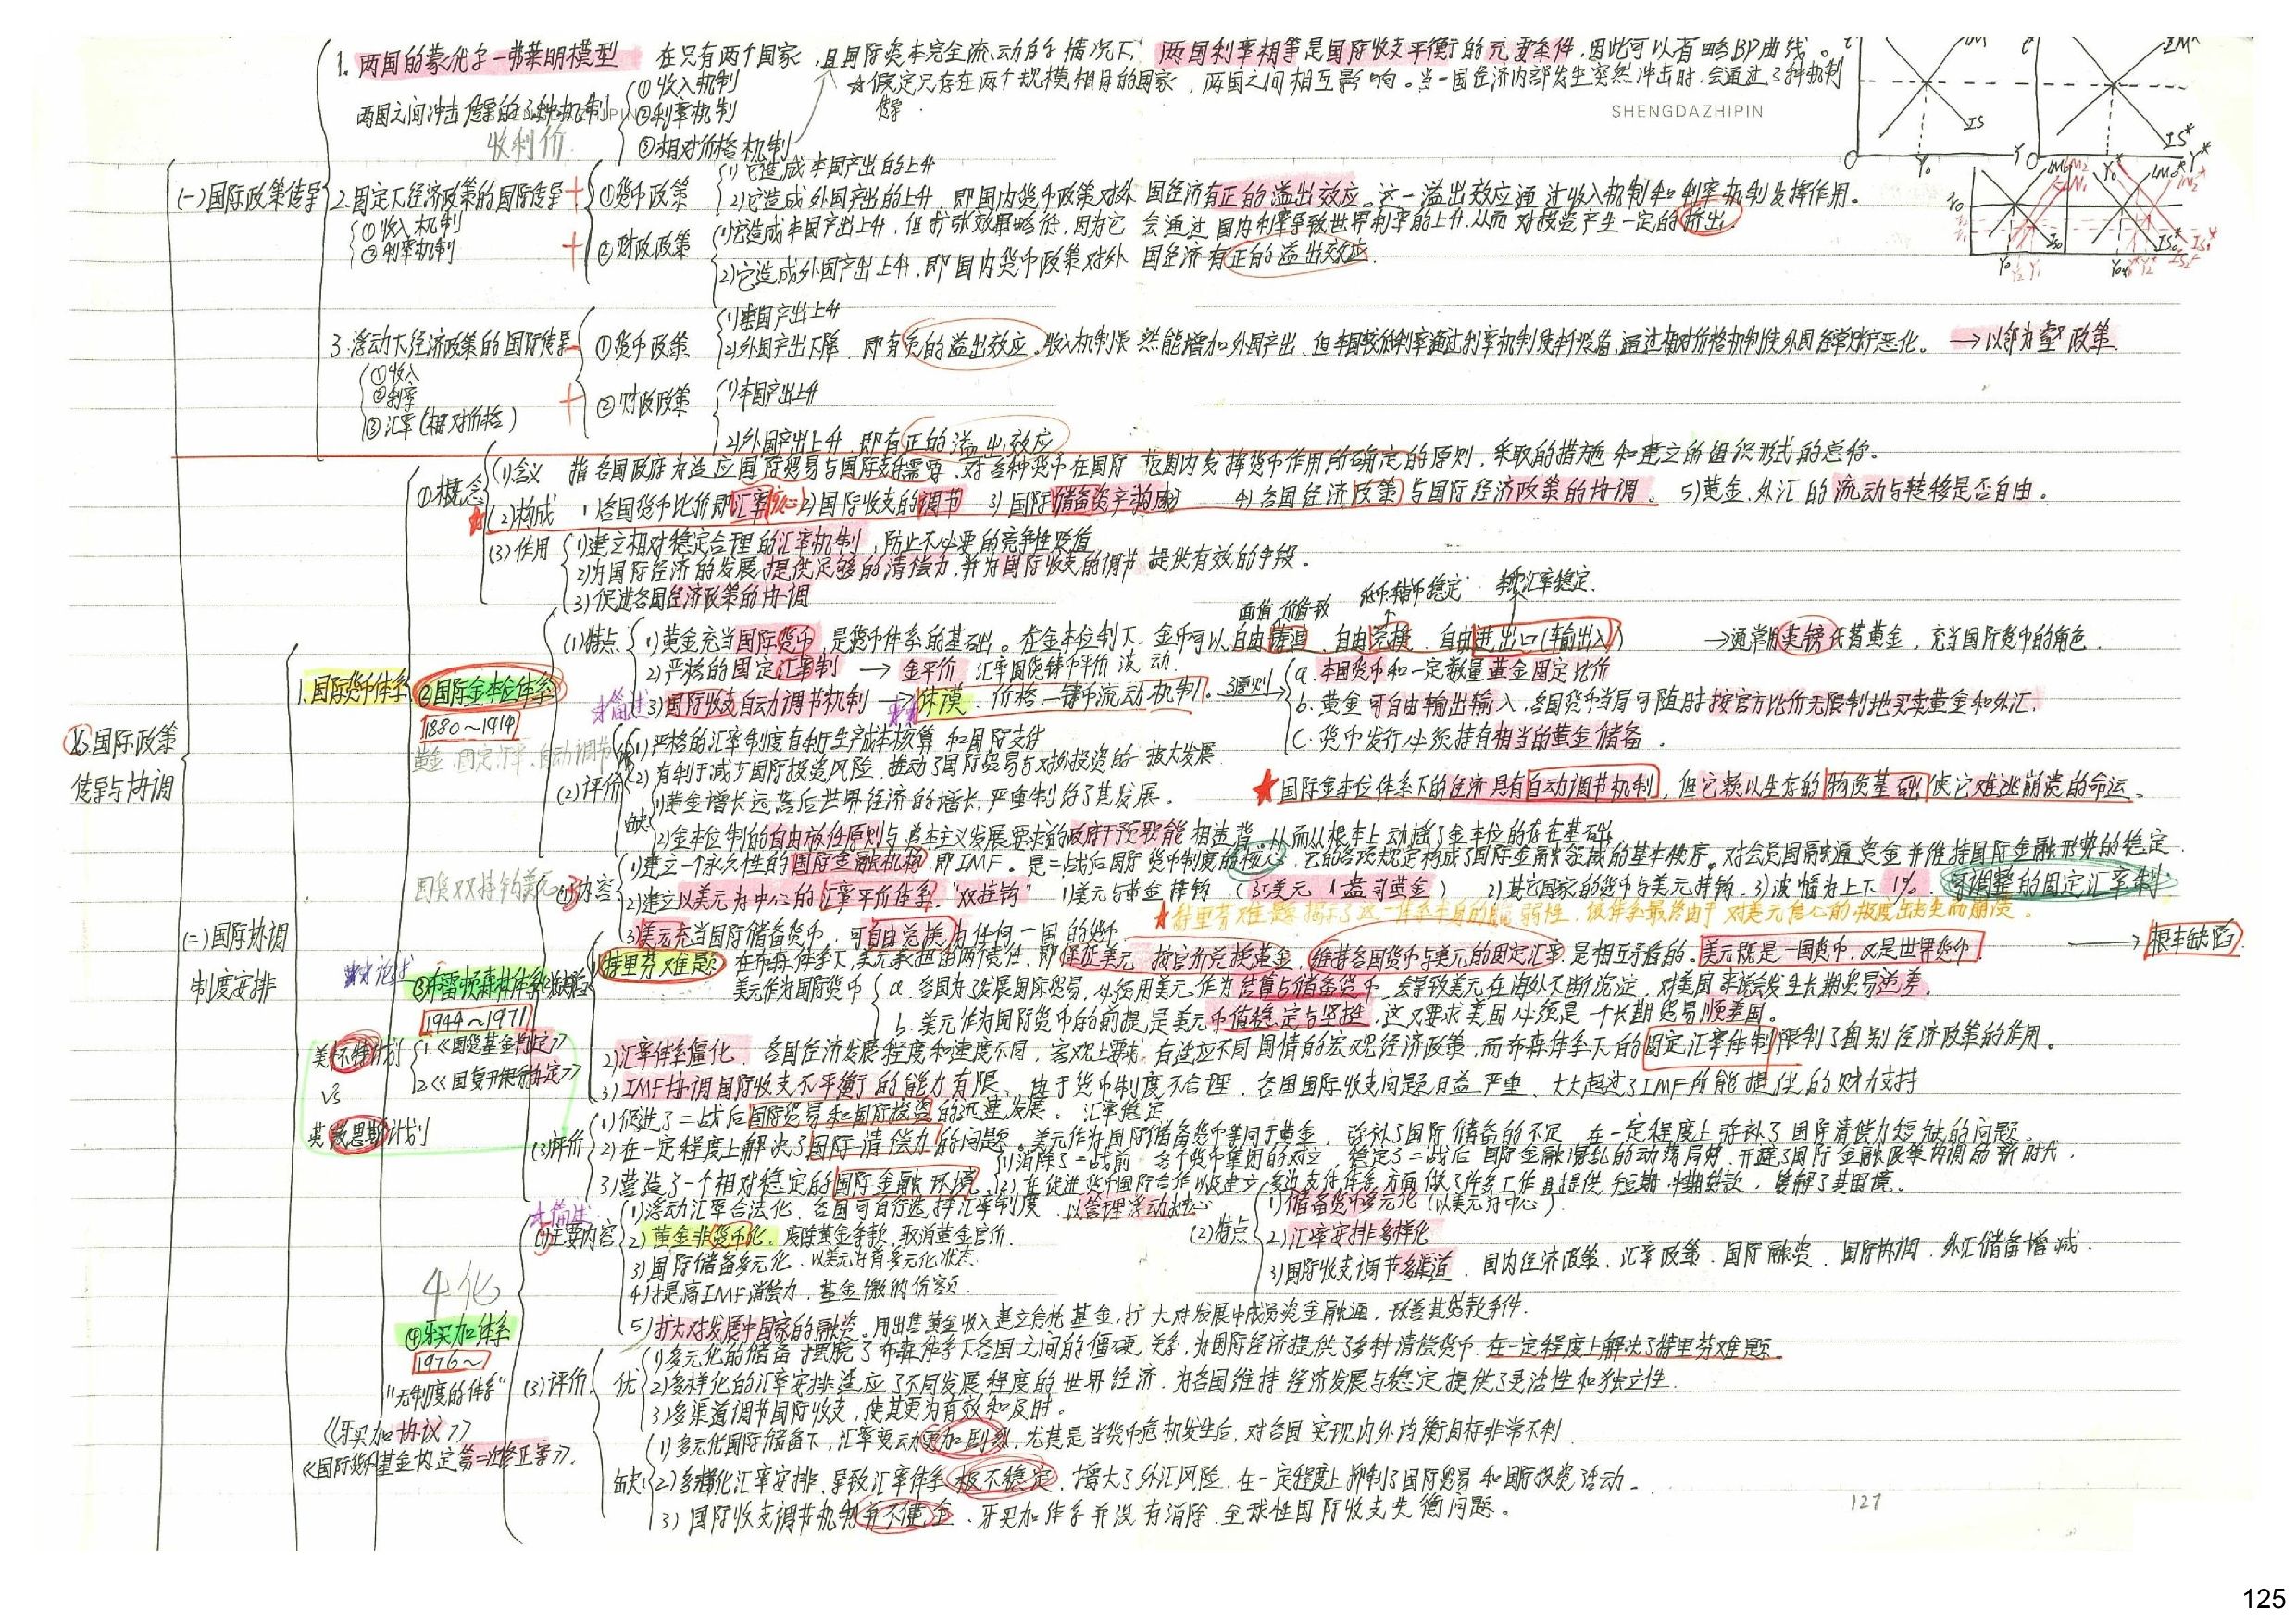 1. 两国的蒙代尔—弗莱明模型 在只有两个国家,且国际资本完全流动的情况下,两国利率相等是国际收支平衡的充要条件,因此可以省略BP曲线。
☆假定只存在两个规模相同的国家,两国之间相互影响。当一国经济内部发生突然冲击时,会通过3种机制
传导
两国之间冲击传导的3种机制
①收入机制
②利率机制
③相对价格机制
收利价
SHENGDAZHIPIN
IS
IS*
Y0
Y
Y*
(一)国际政策传导
2.固定下经济政策的国际传导
①收入机制
②利率机制
+ ①货币政策
1)它造成本国产出的上升
2)它造成外国产出的上升,即国内货币政策对外国经济有正的溢出效应。这一溢出效应通过收入机制和利率机制发挥作用。
+ ②财政政策
1)它造成本国产出上升,但扩张效果略低,因为它会通过国内利率导致世界利率的上升,从而对投资产生一定的挤出。
2)它造成外国产出上升,即国内货币政策对外国经济有正的溢出效应.
3.浮动下经济政策的国际传导
①收入
②利率
③汇率(相对价格)
- ①货币政策
1)本国产出上升
2)外国产出下降,即有负的溢出效应。收入机制虽然能增加外国产出,但本国较低利率通过利率机制使,通过相对价格机制使外国经常账户恶化。 →以邻为壑政策.
+ ②财政政策
1)本国产出上升
2)外国产出上升,即有正的溢出效应
16.国际政策
传导与协调
(二)国际协调
制度安排
1.国际货币体系
①概念
(1)含义 指各国政府为适应国际贸易与国际支付需要,对各种货币在国际范围内发挥货币作用所确定的原则,采取的措施和建立的组织形式的总称。
★(2)构成 1)各国货币比价即汇率(核心) 2)国际收支的调节 3)国际储备资产构成 4)各国经济政策与国际经济政策的协调。 5)黄金、外汇的流动与转移是否自由。
(3)作用
1)建立相对稳定合理的汇率机制,防止不必要的竞争性贬值
2)为国际经济的发展提供足够的清偿力,并为国际收支的调节提供有效的手段。
3)促进各国经济政策的协调
②国际金本位体系
1880~1914
黄金、固定汇率、自动调节
面值价值一致
纸币辅币稳定
汇率稳定.
(1)特点
1)黄金充当国际货币,是货币体系的基础。在金本位制下,金币可以自由铸造、自由兑换、自由进出口(输出入) →通常用英镑代替黄金,充当国际货币的角色.
2)严格的固定汇率制 → 金平价 汇率围绕铸币平价波动.
☆简述 3)国际收支自动调节机制 → 休谟.价格—铸币流动机制。
3原则
a.本国货币和一定数量黄金固定比价
b.黄金可自由输出输入,各国货币当局可随时按官方比价无限制地买卖黄金和外汇.
c.货币发行必须持有相当的黄金储备.
(2)评价
优 1)严格的汇率制度有利于生产成本核算和国际支付
2)有利于减少国际投资风险,推动了国际贸易与对外投资的极大发展.
缺 1)黄金增长远落后世界经济的增长,严重制约了其发展。
2)金本位制的自由放任原则与资本主义发展要求的政府干预职能相违背,从而从根本上动摇了金本位的存在基础.
★国际金本位体系下的经济具有自动调节机制,但它赖以生存的物质基础使它难逃崩溃的命运.
国货双挂钩美元
③布雷顿森林体系
1944~1971
1.《国货基金协定》
2.《国复开银行协定》
美怀特计划
VS
英凯恩斯计划
(1)内容
1)建立一个永久性的国际金融机构,即IMF。是二战后国际货币制度的核心,它的各项规定构成了国际金融领域的基本秩序。对会员国融通资金并维持国际金融形势的稳定
2)建立以美元为中心的汇率平价体系."双挂钩" 1)美元与黄金挂钩 (35美元 1盎司黄金) 2)其它国家的货币与美元挂钩. 3)波幅为上下1%. 可调整的固定汇率制
3)美元充当国际储备货币,可自由兑换为任何一国的货币
★特里芬难题揭示了这一体系本身的脆弱性,该体系最终由于对美元信心的极度丧失而崩溃。
(2)缺陷
1)特里芬难题 在布森体系下,美元承担的两责任,即保证美元按官价兑换黄金,维持各国货币与美元的固定汇率.是相互矛盾的.美元既是一国货币,又是世界货币 → 根本缺陷
美元作为国际货币
a.各国为了发展国际贸易,必须用美元作为结算与储备货币,会导致美元在海外不断沉淀,对美国来说会发生长期贸易逆差.
b.美元作为国际货币的前提是美元币值稳定与坚挺,这又要求美国必须是一个长期贸易顺差国。
2)汇率体系僵化,各国经济发展程度和速度不同,客观上要求有适应不同国情的宏观经济政策,而布森体系下的固定汇率体制限制了国别经济政策的作用。
3)IMF协调国际收支不平衡的能力有限,由于货币制度不合理,各国国际收支问题日益严重,大大超过了IMF所能提供的财力支持
(3)评价
1)促进了二战后国际贸易和国际投资的迅速发展. 汇率稳定
2)在一定程度上解决了国际清偿力的问题.美元作为国际储备货币等同于黄金,弥补了国际储备的不足,在一定程度上弥补了国际清偿力短缺的问题.
3)营造了一个相对稳定的国际金融环境.
(1)消除了二战前各个货币集团的对立,稳定了二战后国际金融混乱的动荡局势,开辟了国际金融政策协调的新时代.
(2)在促进货币国际合作以及建立多边支付体系方面做了许多工作,且提供短期、中期贷款,缓解了其困境。
4化
④牙买加体系
1976~
"无制度的体系"
《牙买加协议》
《国际货币基金协定第二次修正案》.
☆简述
(1)主要内容
1)浮动汇率合法化,各国可自行选择汇率制度.以管理浮动为核心
2)黄金非货币化.废除黄金条款,取消黄金官价.
3)国际储备多元化,以美元为首多元化状态
4)提高IMF清偿力,基金缴纳份额.
5)扩大对发展中国家的融资.用出售黄金收入建立信托基金,扩大对发展中成员资金融通,改善其贷款条件.
(2)特点
1)储备货币多元化(以美元为中心)
2)汇率安排多样化
3)国际收支调节多渠道.国内经济政策、汇率政策、国际融资、国际协调、外汇储备增减.
(3)评价
优
1)多元化的储备摆脱了布森体系下各国之间的僵硬关系,为国际经济提供了多种清偿货币.在一定程度上解决了特里芬难题.
2)多样化的汇率安排适应了不同发展程度的世界经济.为各国维持经济发展与稳定提供了灵活性和独立性.
3)多渠道调节国际收支,使其更为有效和及时.
缺
1)多元化国际储备下,汇率变动更加剧烈,尤其是当货币危机发生后,对各国实现内外均衡目标非常不利
2)多样化汇率安排,导致汇率体系极不稳定,增大了外汇风险,在一定程度上抑制了国际贸易和国际投资活动.
3)国际收支调节机制并不健全.牙买加体系并没有消除全球性国际收支失衡问题。
127
125